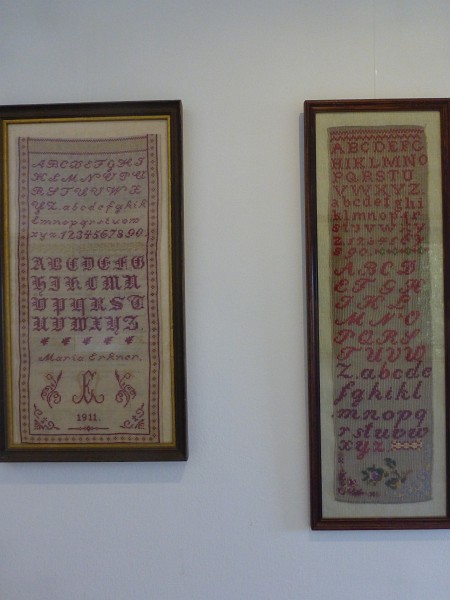 ABCDEFGHI
KLMNOPQ
RSTUVWX
YZ. abcdefghik
lmnopqrstuvw
xyz. 1234567890.
ABCDEFG
HIKLMN
OPQRST
UVWXYZ.
Maria Erkner.
1911.
ABCDEFG
HIKLMNO
PQRSTU
VWXYZ
abcdefghi
klmnopqr
ABCD
EFGH
IKL
MNO
PQRS
TUVW
Z. abcde
fghikl
mnopq
rstuvw
xyz.